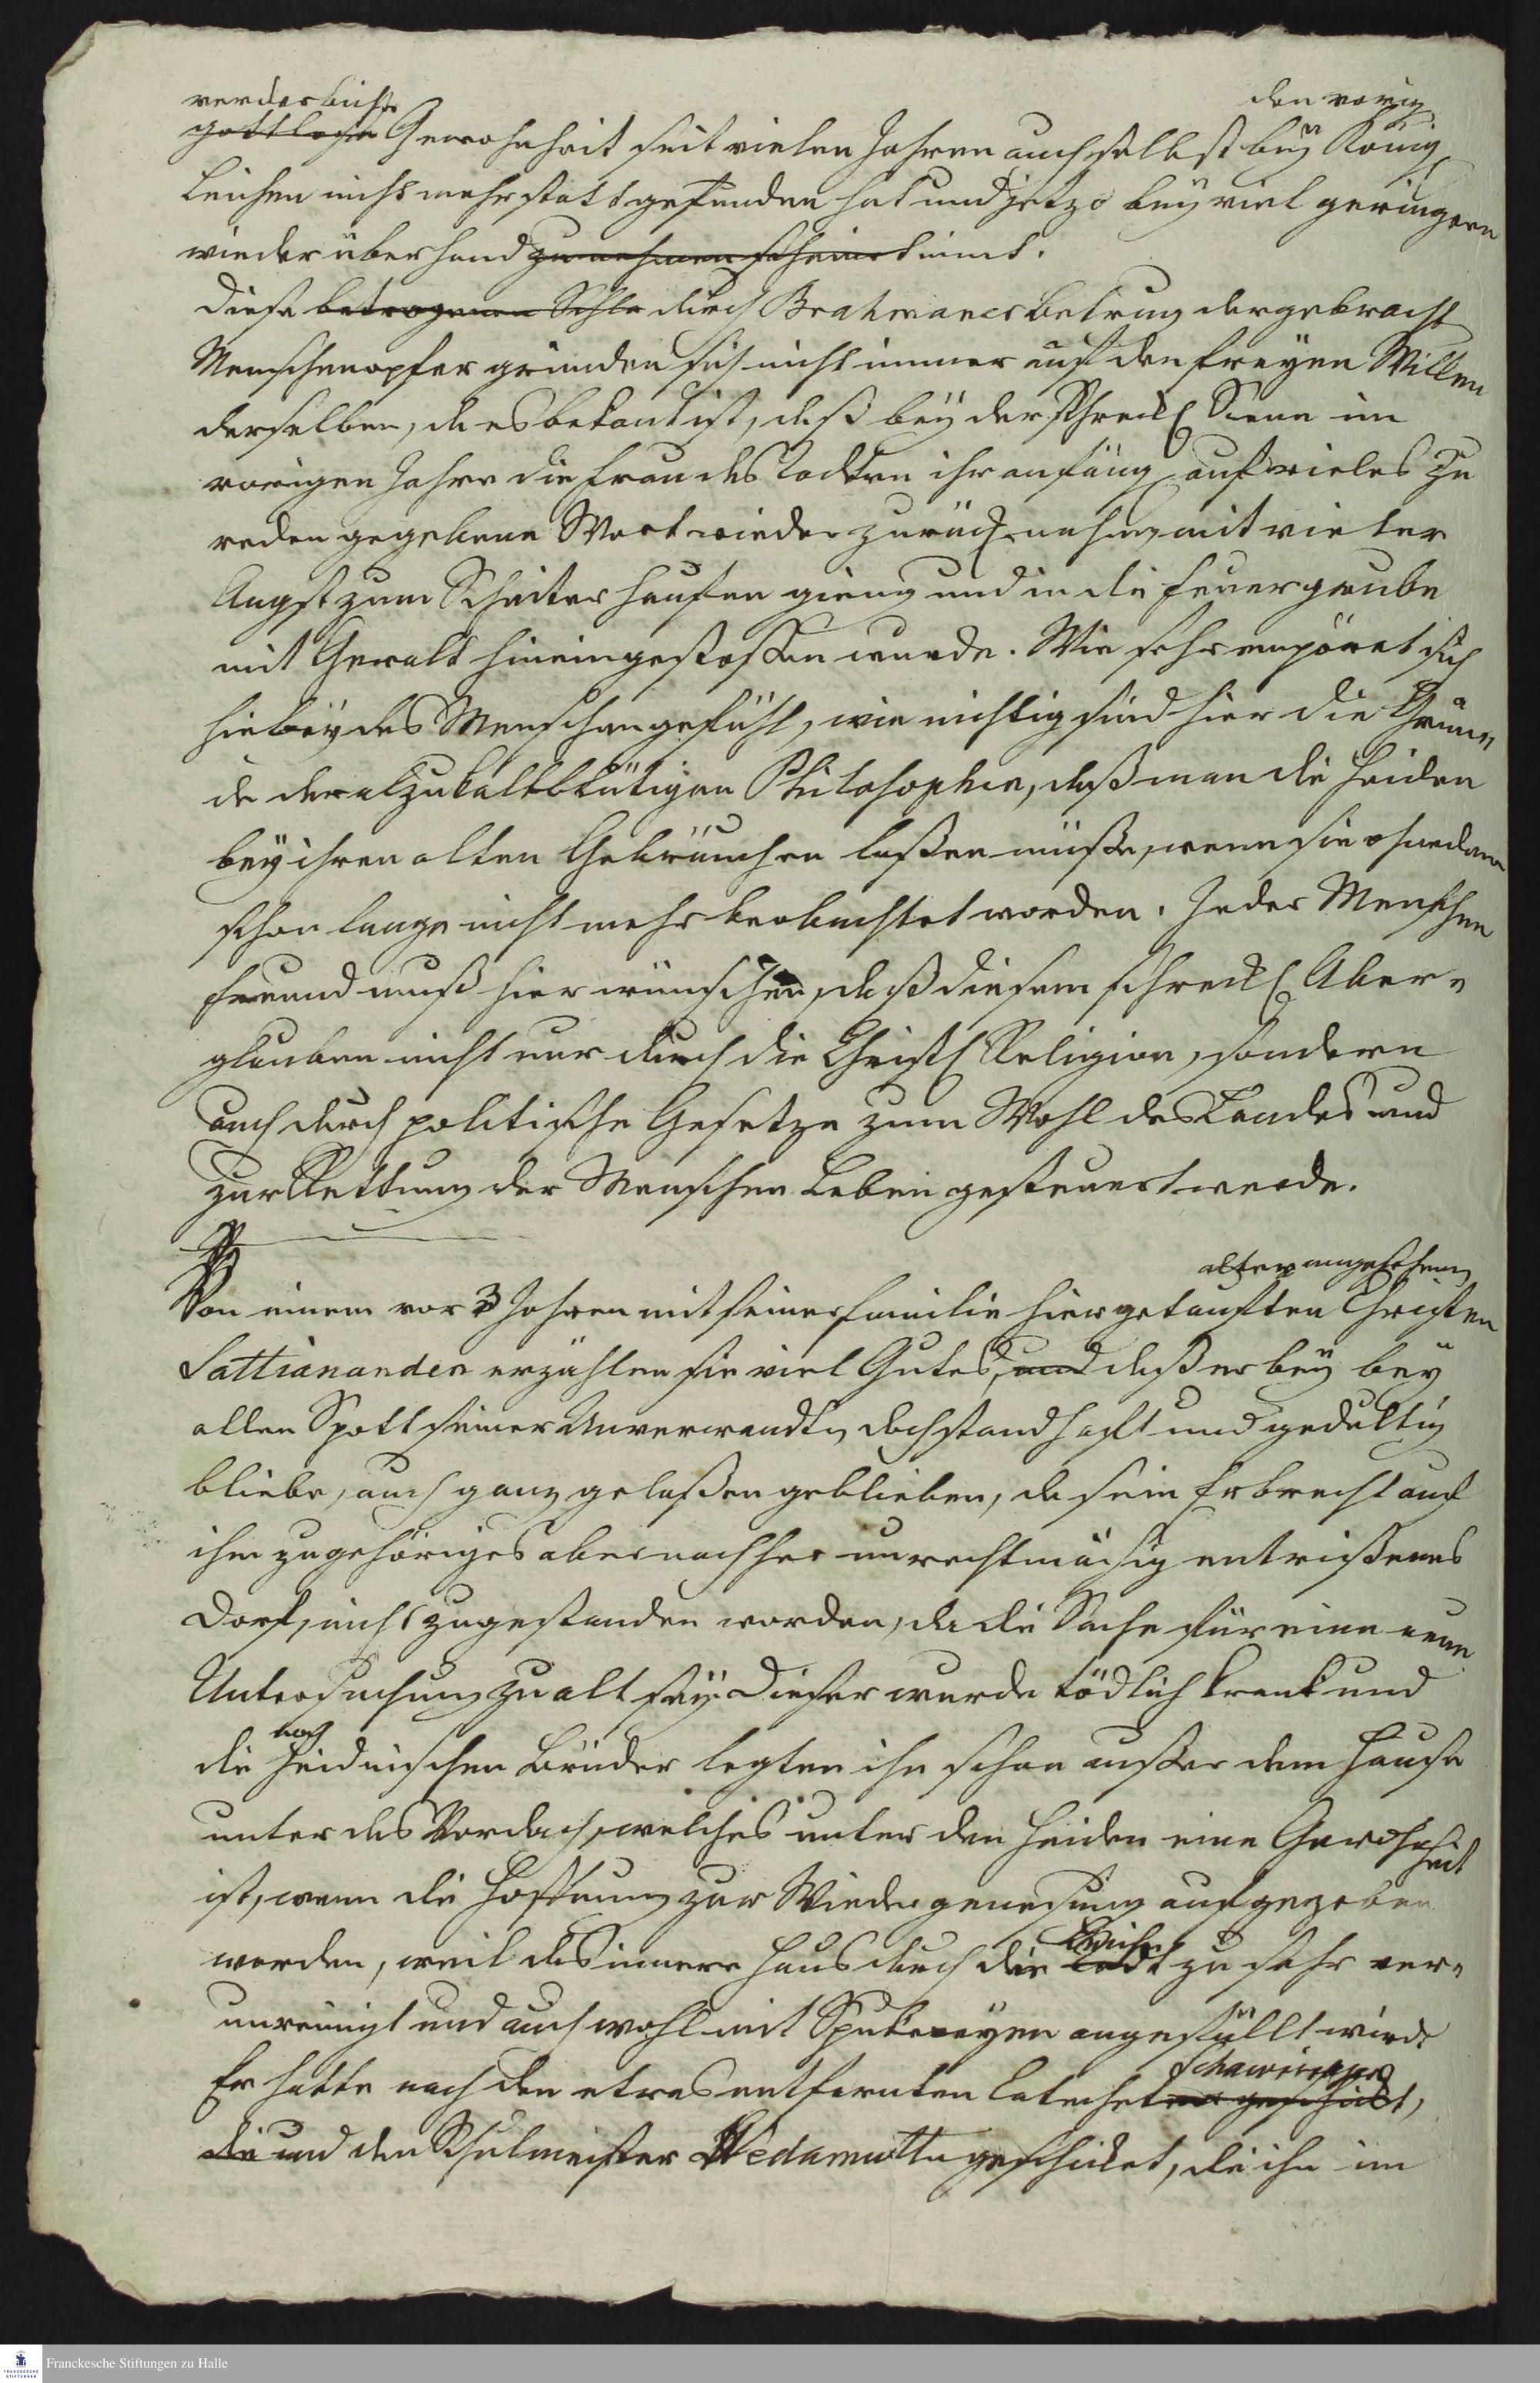 verderbliche
den vorig
gottlose Gewohnheit seit vielen Jahren auch selbst bey König
Leichen nicht mehr statt gefunden hat und jetzo bey viel geringern
wieder überhand zu nehmen scheint nimt.
Diese betrogenen durch Brahmaner betrug dargebracht
Menschenopfer gründen sich nicht immer auf den freyen Willen
derselben, da es bekant ist, daß bey der schreckl Scene im
vorigen Jahre die Frau des Todten ihr anfäng auf vieles Zu
reden gegebene Wort wieder zurück nahm, mit vieler
Angst zum Scheiterhaufen gieng und in die Feuergrube
mit Gewalt hineingestossen wurde. Wie sehr empöret sich
hiebey das Menschengefühl, wie nichtig sind hier die Grün-
de der alzukaltblütigen Philosophen, daß man die Heiden
bey ihren alten Gebräuchen laßen müsse, wenn sie ohnedem
schon lange nicht mehr beobachtet worden. Jeder Menschen
freund muß hier wünschen, daß diesem schreckl Aber-
glauben nicht nur durch die Christl Religion, sondern
auch durch politische Gesetze zum Wohl des Landes und
zur Rettung der Menschen Leben gesteuert werde.
alten angesehenen
Von einem vor 3 Jahren mit seiner Familie hier getauften Christen
Sattiananden erzählen sie viel Gutes, und daß er bey bey
allen Spott seiner Anverwandten doch standhaft und gedultig
bliebe, auch ganz gelaßen geblieben, da sein Erbrecht auf
ihm zugehöriges aber nachher unrechtmäßig entrißenes
Dorf, nicht zugestanden worden, da die Sache für eine neue
Untersuchung zu alt sey. Dieser wurde tödlich krank und
noch
die heidnischen Brüder legten ihn schon ausser dem Hause
unter das Vordach, welches unter den Heiden eine Gewohnheit
ist, wenn die Hoffnung zur Wiedergenesung aufgegeben
Leiche
worden, weil das innere Haus durch die Todt zu sehr ver-
unreinigt und auch wohl mit Spukereyen angefüllt wird.
Schawrirajen
Er hatte nach den etwas entfernten Catecheten geschickt,
die und den Schulmeister Wedamuttu geschicket, die ihn im
Franckesche Stiftungen zu Halle